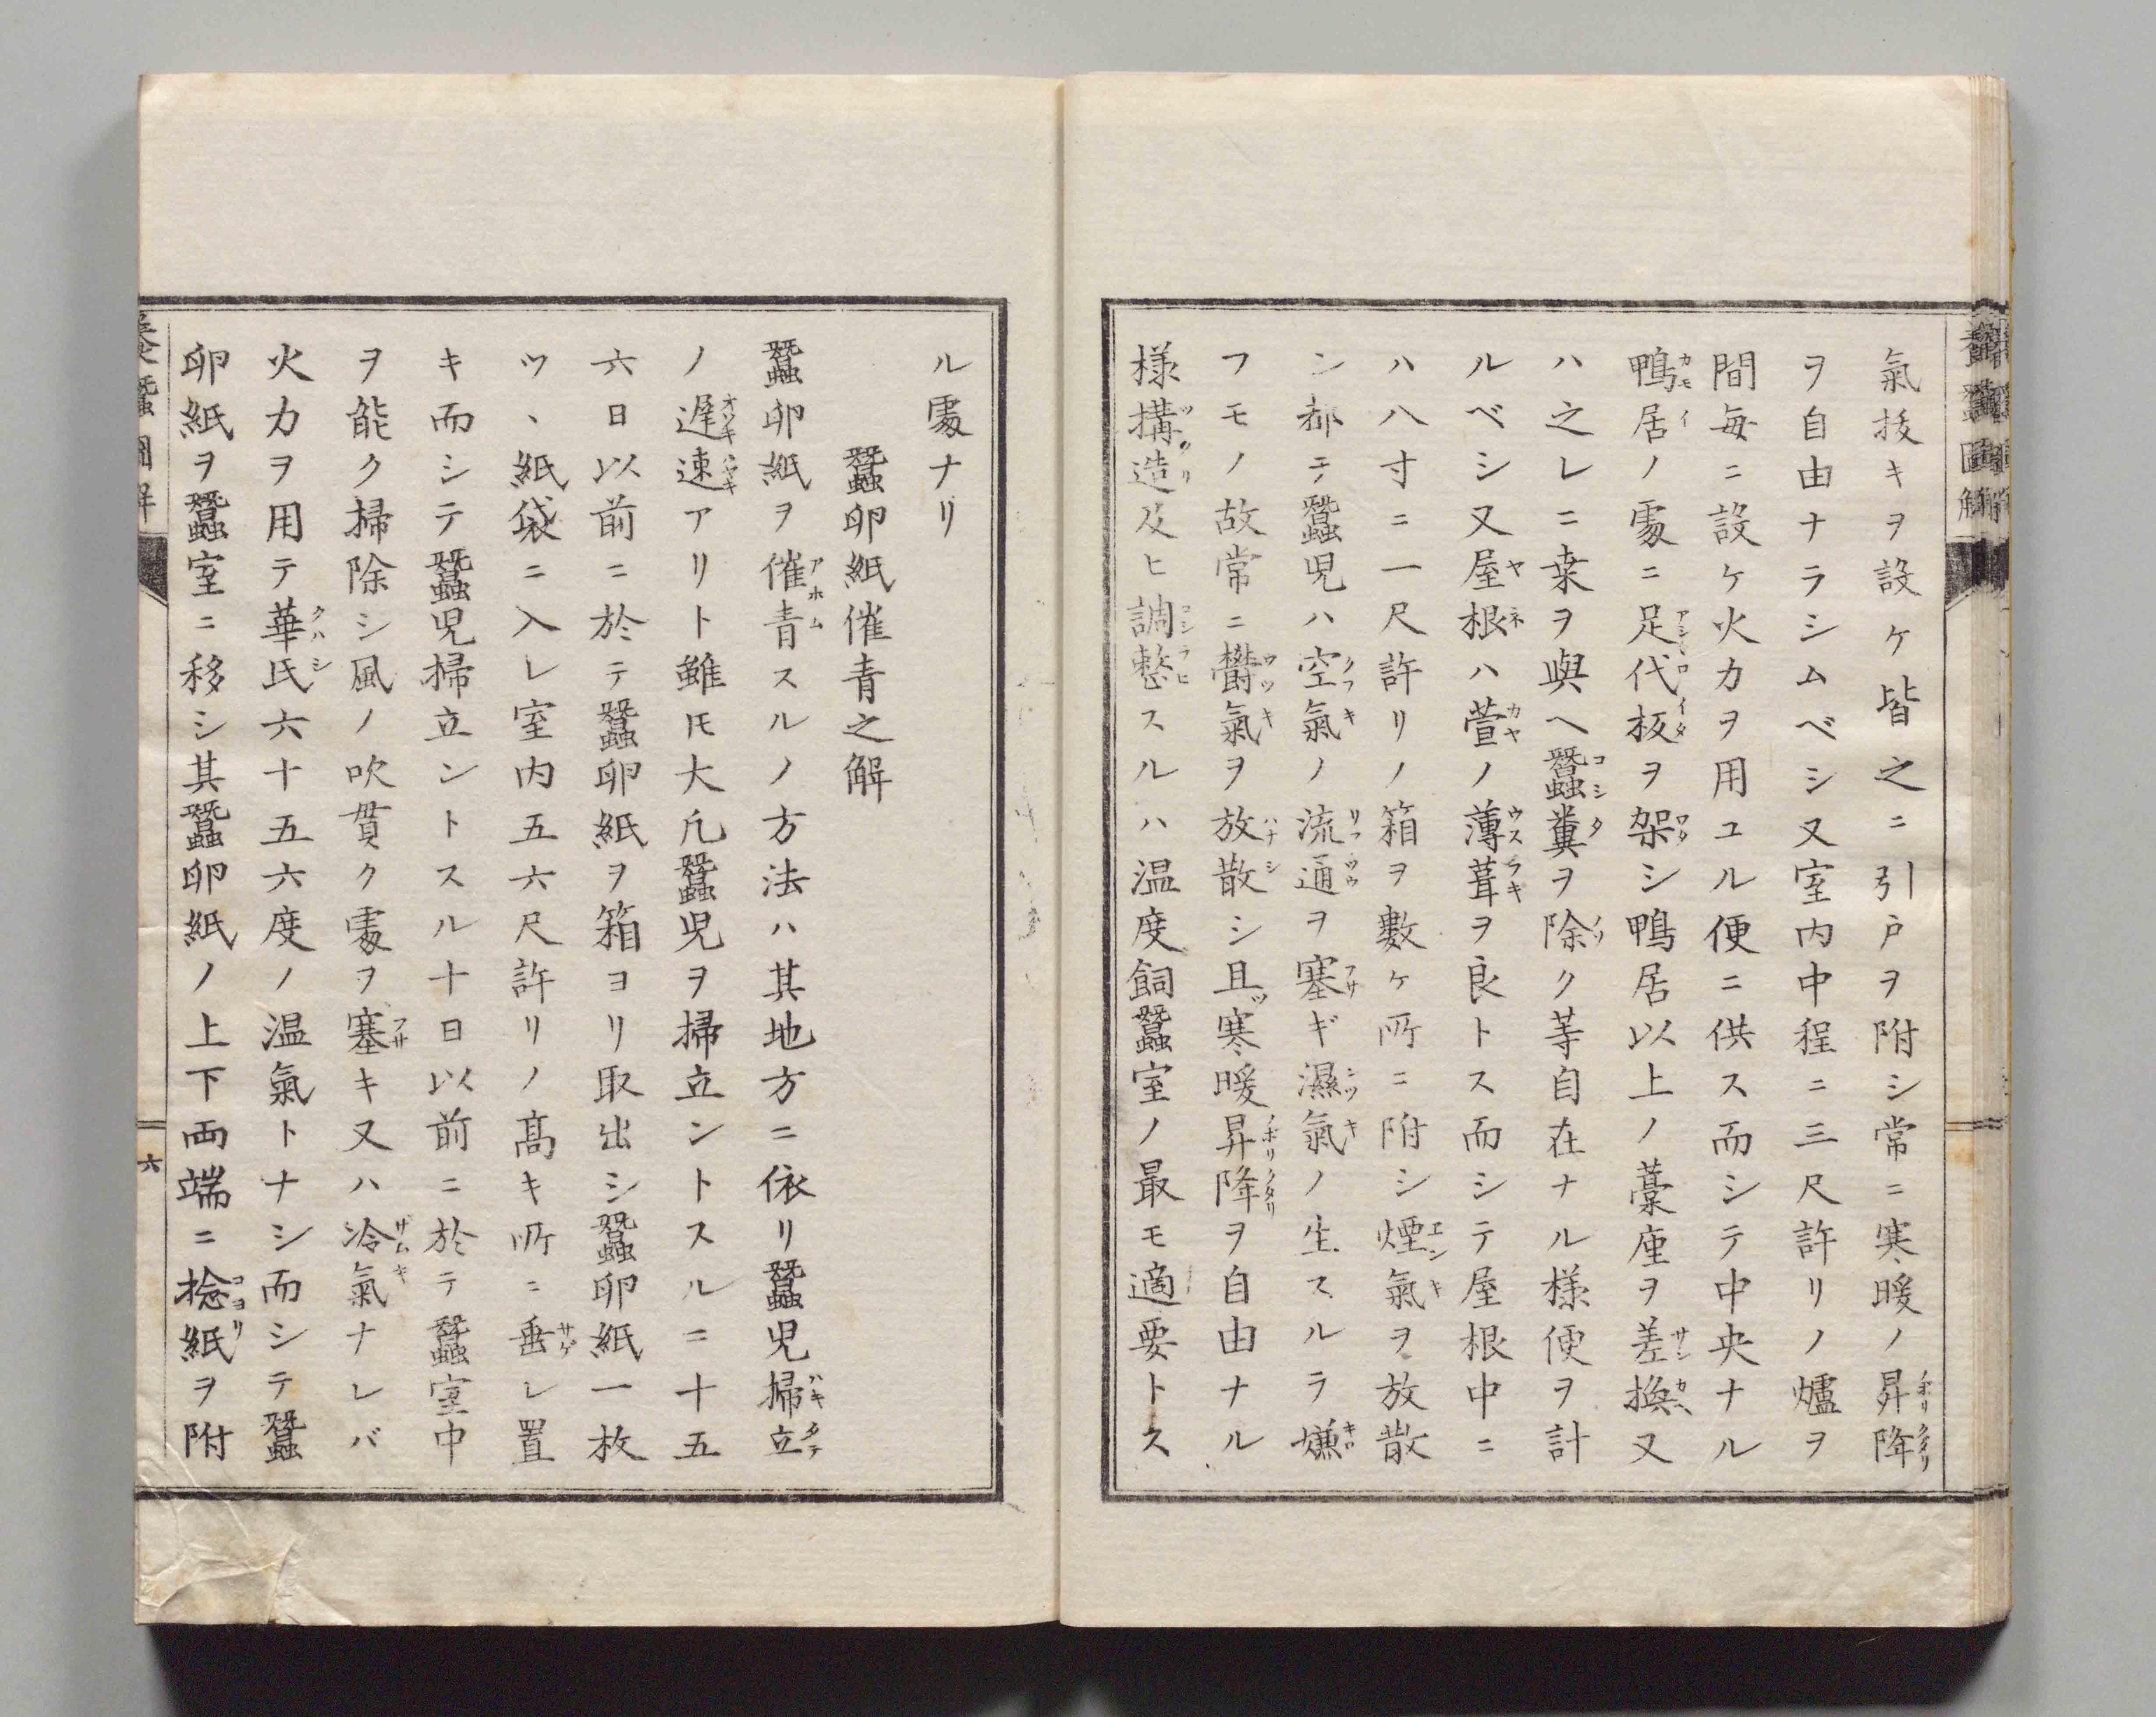 氣拔キヲ設ケ皆之ニ引戸ヲ附シ常ニ寒暖ノ昇降
ヲ自由ナラシムベシ又室内中程ニ三尺許リノ爐ヲ
間毎ニ設ケ火カヲ用ユル便ニ供ス而シテ中央ナル
鴨居ノ處ニ足代板ヲ架シ鴨居以上ノ藁座ヲ差換又
ハ之レニ桒ヲ與ヘ蠶糞ヲ除ク等自在ナル様便ヲ計
ルベシ又屋根ハ萱ノ薄葺ヲ良トス而シテ屋根中ニ
ハ八寸ニ一尺許リノ箱ヲ數ヶ所ニ附シ煙氣ヲ放散
ン都テ蠶児ハ空氣ノ流通ヲ塞ギ濕氣ノ生スルヲ嫌
フモノ故常ニ欝氣ヲ放散シ且寒暖昇降ヲ自由ナル
様搆造及ヒ調整スルハ温度飼蠶室ノ最モ適要トス
ル處ナリ
蠶卵紙催青之解
蠶卵紙ヲ催青スルノ方法ハ其地方ニ依リ蠶児掃立
ノ遅速アリト雖モ大凡蠶児ヲ掃立ントスルニ十五
六日以前ニ於テ蠶卵紙ヲ箱ヨリ取出シ蠶卵紙一枚
ツヽ紙袋ニ入レ室内五六尺許リノ高キ所ニ垂レ置
キ而シテ蠶児掃立ントスル十日以前ニ於テ蠶室中
ヲ能ク掃除シ風ノ吹貫ク處ヲ塞キ又ハ冷氣ナレバ
火カヲ用テ華氏六十五六度ノ温氣トナシ而シテ蠶
卵紙ヲ蠶室ニ移シ其蠶卵紙ノ上下両端ニ捻紙ヲ附
六